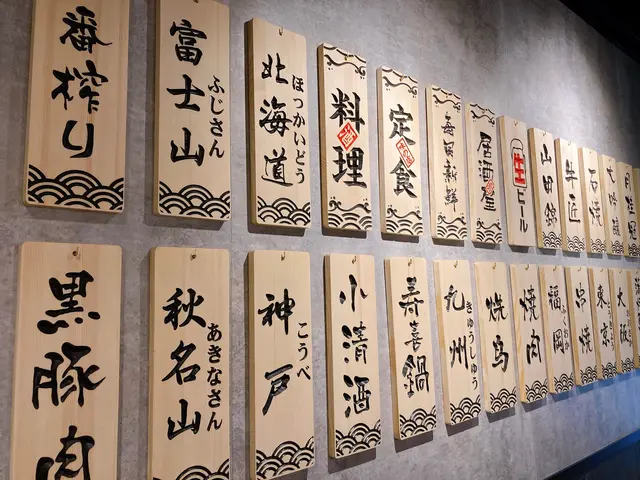 番搾り
富士山
ふじさん
北海道
ほっかいどう
料理
定食
毎日新鮮
居酒屋
生ビール
山田錦
牛匠
石焼
黒豚肉
秋名山
あきなさん
神戸
こうべ
小清酒
寿喜鍋
九州
きゅうしゅう
焼鸟
焼肉
福岡
ふくおか
串焼
東京
大阪